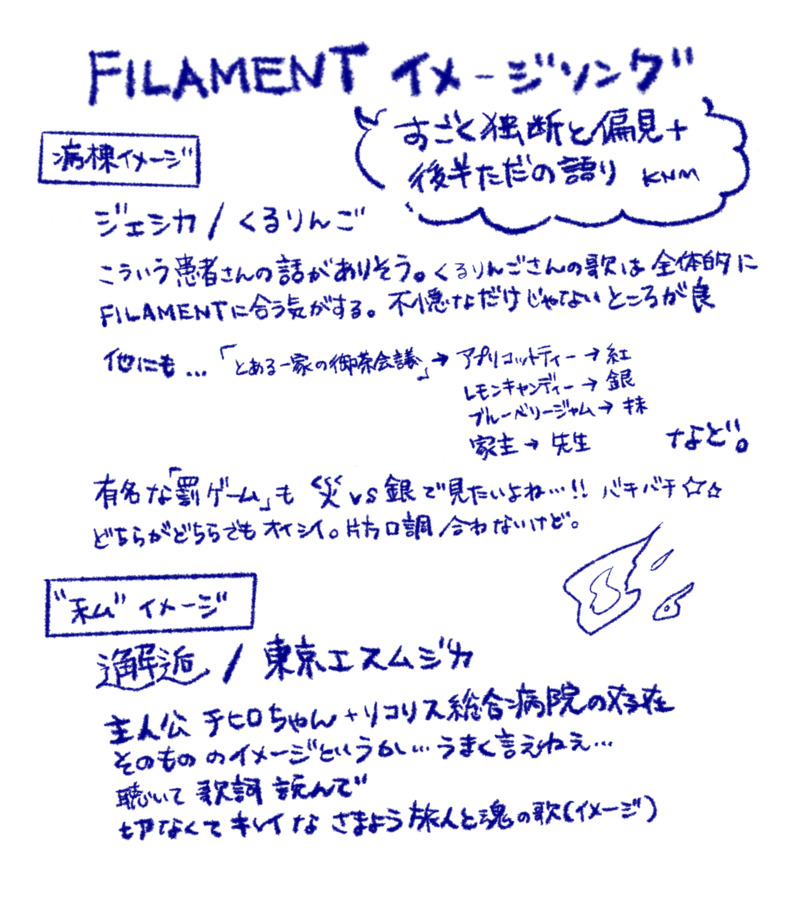 FILAMENT イメージソング
すごく独断と偏見+
後半ただの語り KNM
病棟イメージ
ジェシカ / くるりんご
こういう患者さんの話がありそう。くるりんごさんの歌は全体的に
FILAMENTに合う気がする。不憫なだけじゃないところが良
他にも…「とある一家の御茶会議」→ アプリコットティー → 紅
レモンキャンディー → 銀
ブルーベリージャム → 抹
家主 → 先生 など。
有名な「罰ゲーム」も 災 vs 銀で見たいよね…!! バチバチ☆☆
どちらがどちらでもオイシイ。片方口調合わないけど。
"私" イメージ
邂逅 / 東京エスムジカ
主人公 チヒロちゃん+リコリス総合病院の存在
そのもの のイメージというか…うまく言えねえ…
聴いて 歌詞 読んで
切なくてキレイな さまよう旅人と魂の歌(イメージ)